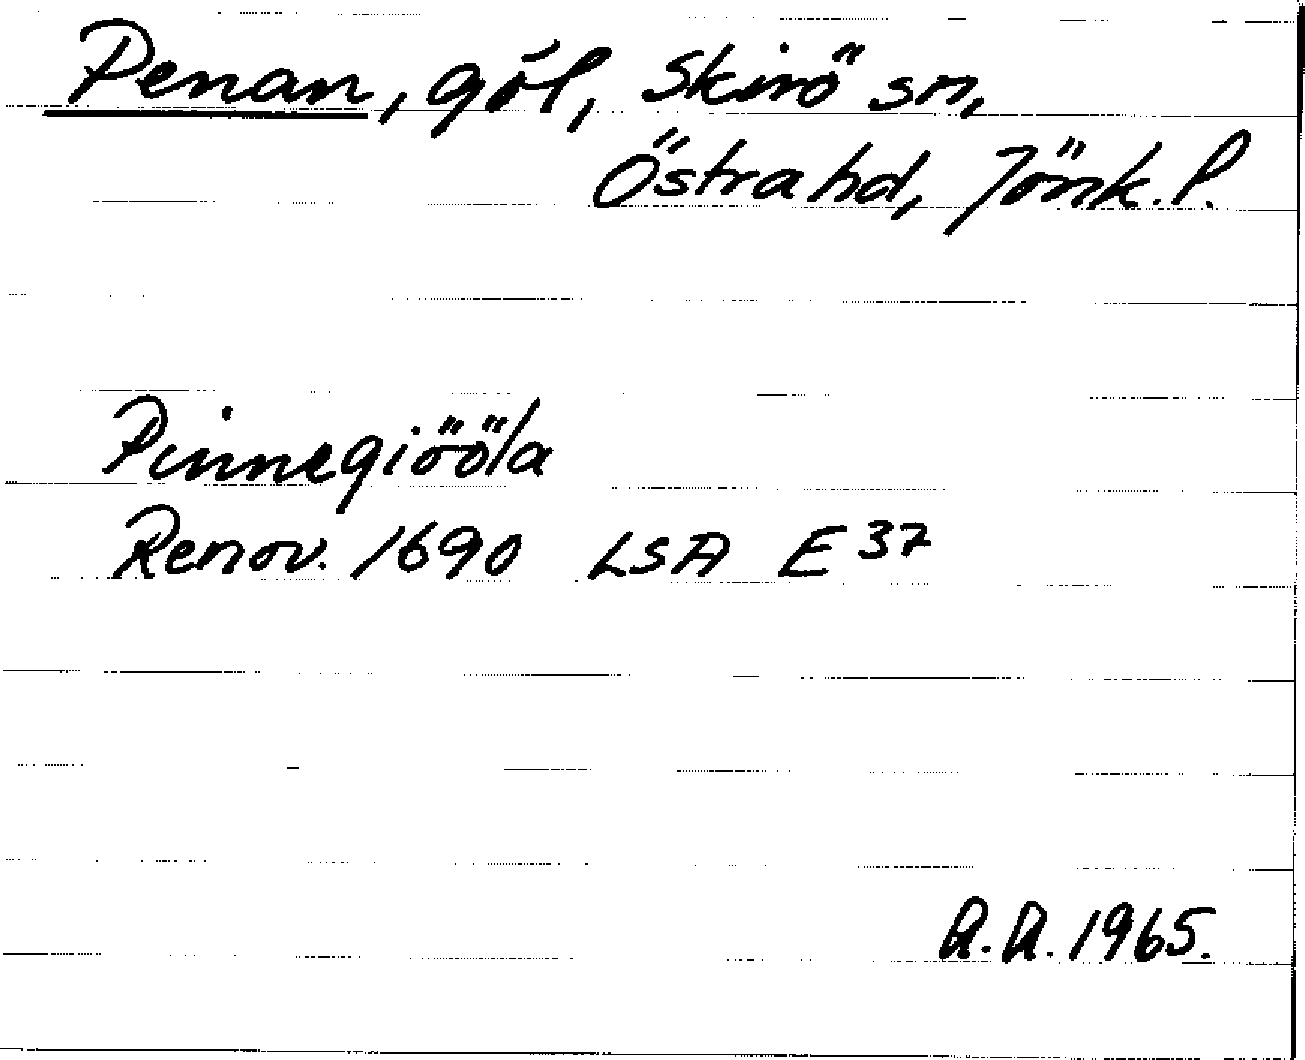 Penan, göl, Skirö sn,
Östra hd, Jönk. l.
Pinnegiööla
Renov. 1690 LSA E 37
A.A. 1965.